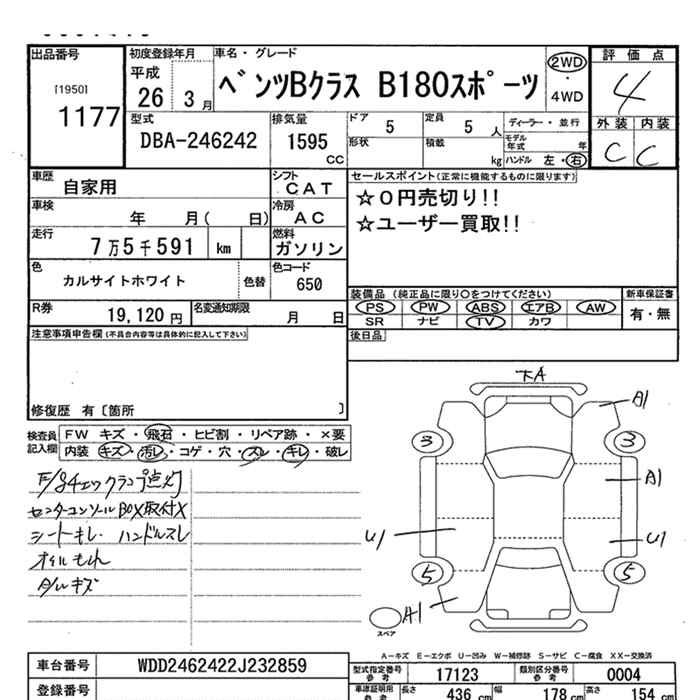 出品番号 初度登録年月 車名・グレード 評価点
[1950] 1177 平成 26 3月 ベンツBクラス B180スポーツ 2WD ・ 4WD 4
型式 排気量 ドア 5 定員 5人 ディーラー・並行 外装 内装
DBA-246242 1595 CC 形状 積載 kg モデル年式 年 ハンドル 左・右 C C
車歴 自家用 シフト CAT セールスポイント(正常に機能するものに限ります)
車検 年 月( 日) 冷房 AC ☆0円売切り!!
走行 7万5千591 km 燃料 ガソリン ☆ユーザー買取!!
色 カルサイトホワイト 色替 色コード 650
装備品 (純正品に限り○をつけてください) 新車保証書
R券 19,120円 名変通知期限 月 日 PS PW ABS エアB AW 有・無
SR ナビ TV カワ
注意事項申告欄(不具合内容等は具体的に記入して下さい) 後日品
修復歴 有〔箇所 〕
検査員記入欄 FW キズ・飛石・ヒビ割・リペア跡・×要
内装 キズ・汚レ・コゲ・穴・スレ・キレ・破レ
F/Sチェックランプ点灯
センターコンソールBOX取付X
シートキレ ハンドルスレ
オイルもれ
A/Wキズ
大A
A1
3 3
A1
U1 U1
5 5
A1
スペア
A-キズ E-エクボ U-凹み W-補修跡 S-サビ C-腐食 XX-交換済
車台番号 WDD2462422J232859 型式指定番号 参考 17123 類別区分番号 参考 0004
登録番号 車庫証明用 参考 長さ 436 cm 幅 178 cm 高さ 154 cm